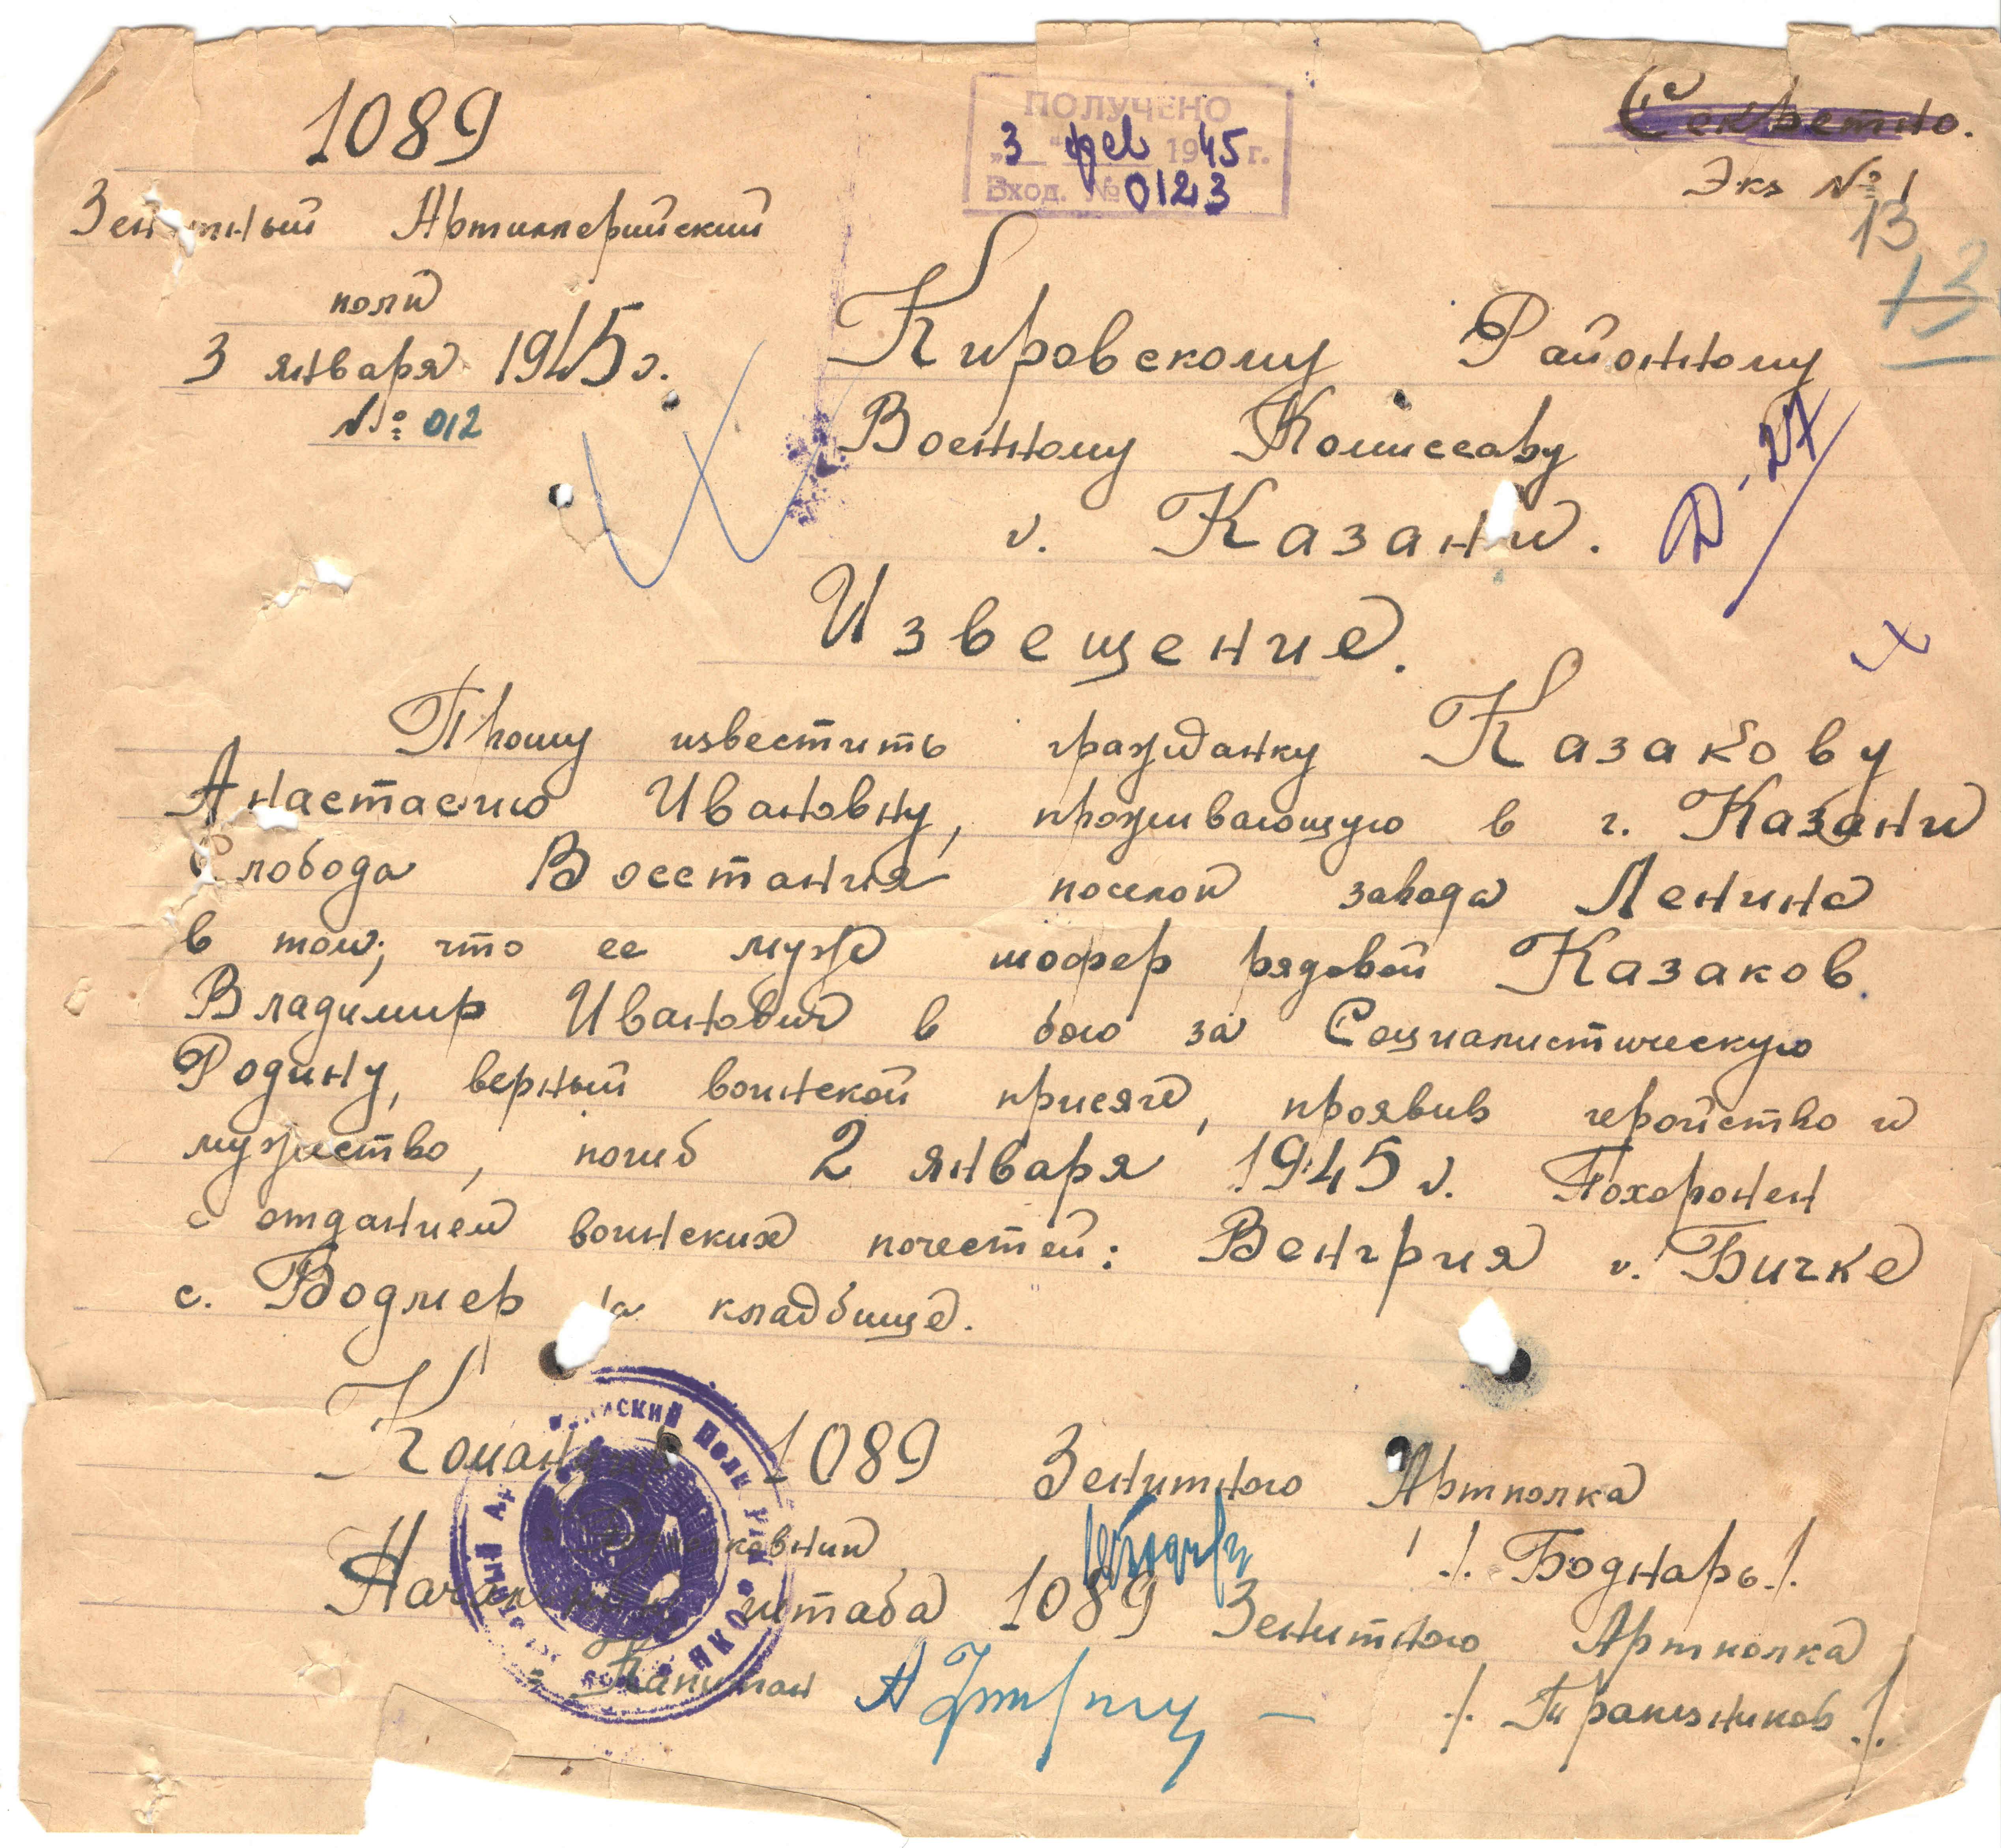 1089
Зенитный Артиллерийский
полк
3 января 1945 г.
№ 012
ПОЛУЧЕНО
„3" фев 1945 г.
Вход. № 0123
Секретно.
Экз № 1
13
13
Кировскому Районному
Военному Комиссару
г. Казани.
Д-27
Извещение.
Прошу известить гражданку Казакову
Анастасию Ивановну, проживающую в г. Казани
Слобода Восстания поселок завода Ленина
в том, что ее муж шофер рядовой Казаков
Владимир Иванович в бою за Социалистическую
Родину, верный воинской присяге, проявив геройство и
мужество, погиб 2 января 1945 г. Похоронен
с отданием воинских почестей: Венгрия г. Бичке
с. Водмер на кладбище.
Командир 1089 Зенитного Артполка
Подполковник /. Боднарь./.
Начальник штаба 1089 Зенитного Артполка
Капитан /. Трапизников./.